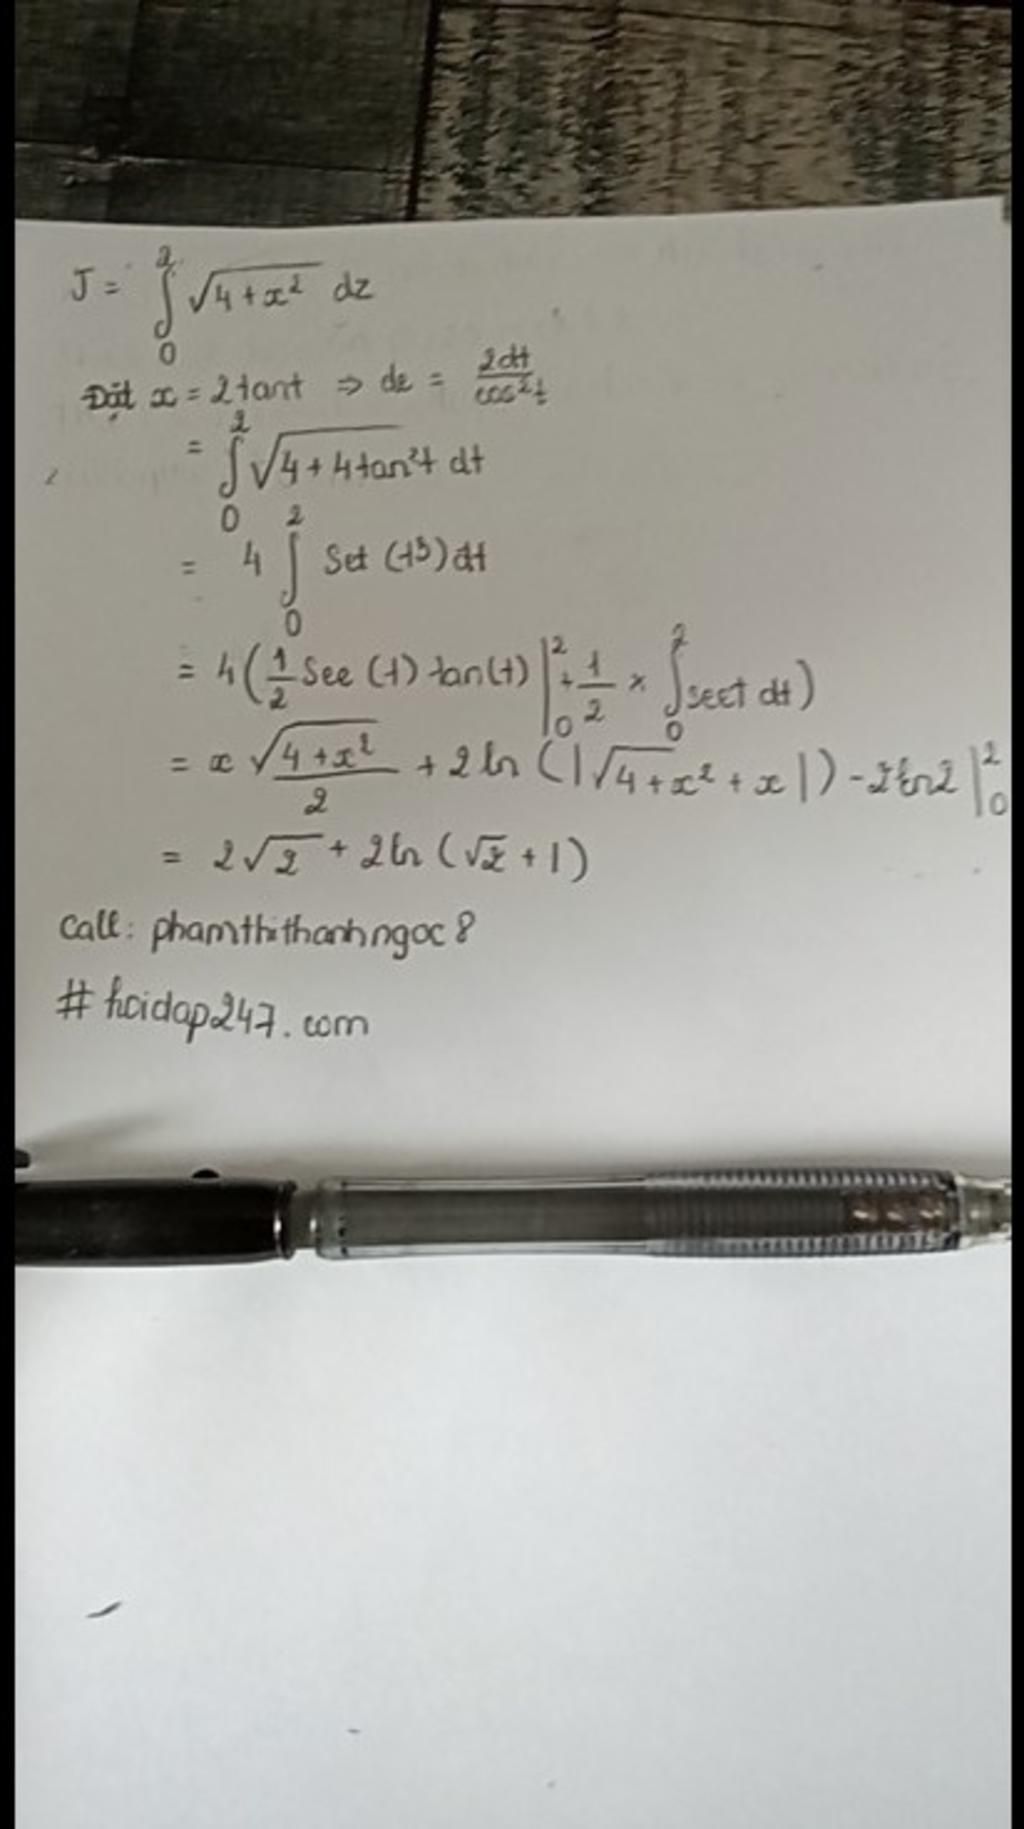 J = ∫₀² √(4+x²) dz
Đặt x = 2tant ⇒ dz = 2dt/cos²t
= ∫₀² √(4+4tan²t) dt
= 4 ∫₀² Set (t³) dt
= 4(1/2 See (t) tan(t) |₀² + 1/2 × ∫₀² sect dt)
= x √(4+x²)/2 + 2 ln (|√(4+x²) + x|) - 2 ln2 |₀²
= 2√2 + 2ln (√2 + 1)
Call: phamthithanhngoc8
# hoidap247.com